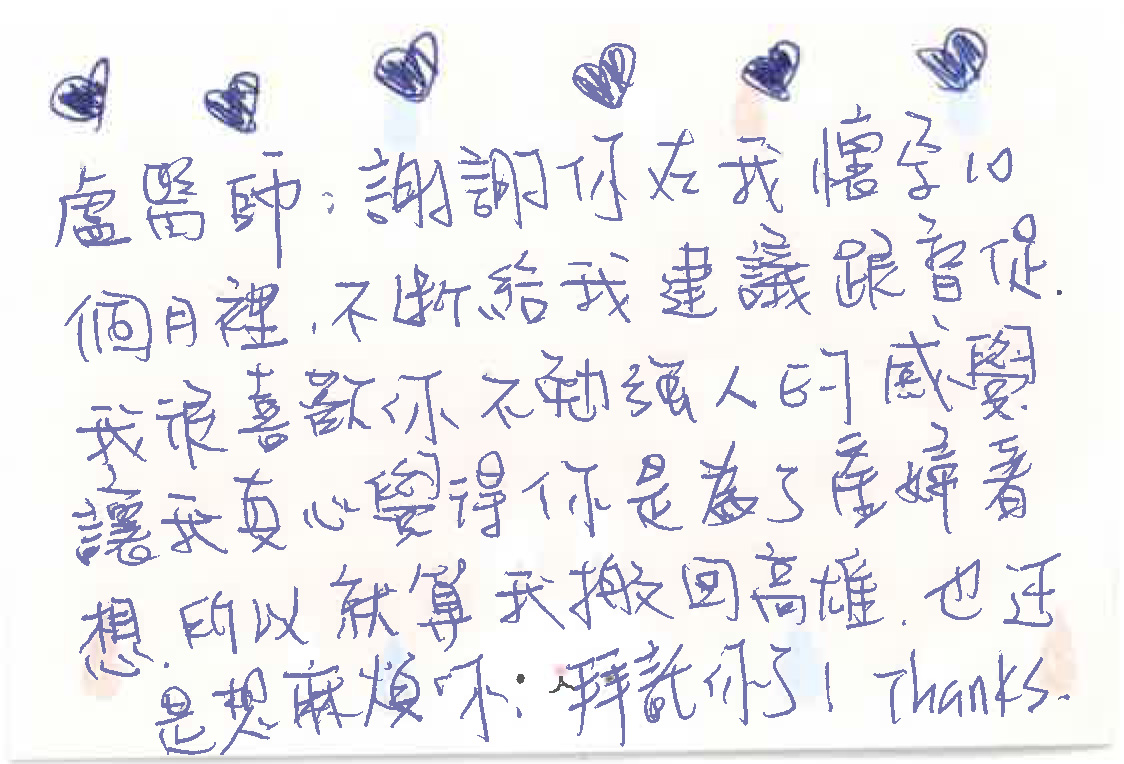 盧醫師：謝謝你在我懷孕10
個月裡，不斷給我建議跟督促.
我很喜歡你不勉強人的感覺
讓我真心覺得你是為了產婦著
想.所以就算我搬回高雄.也还
是想麻煩你：拜託你了! Thanks.